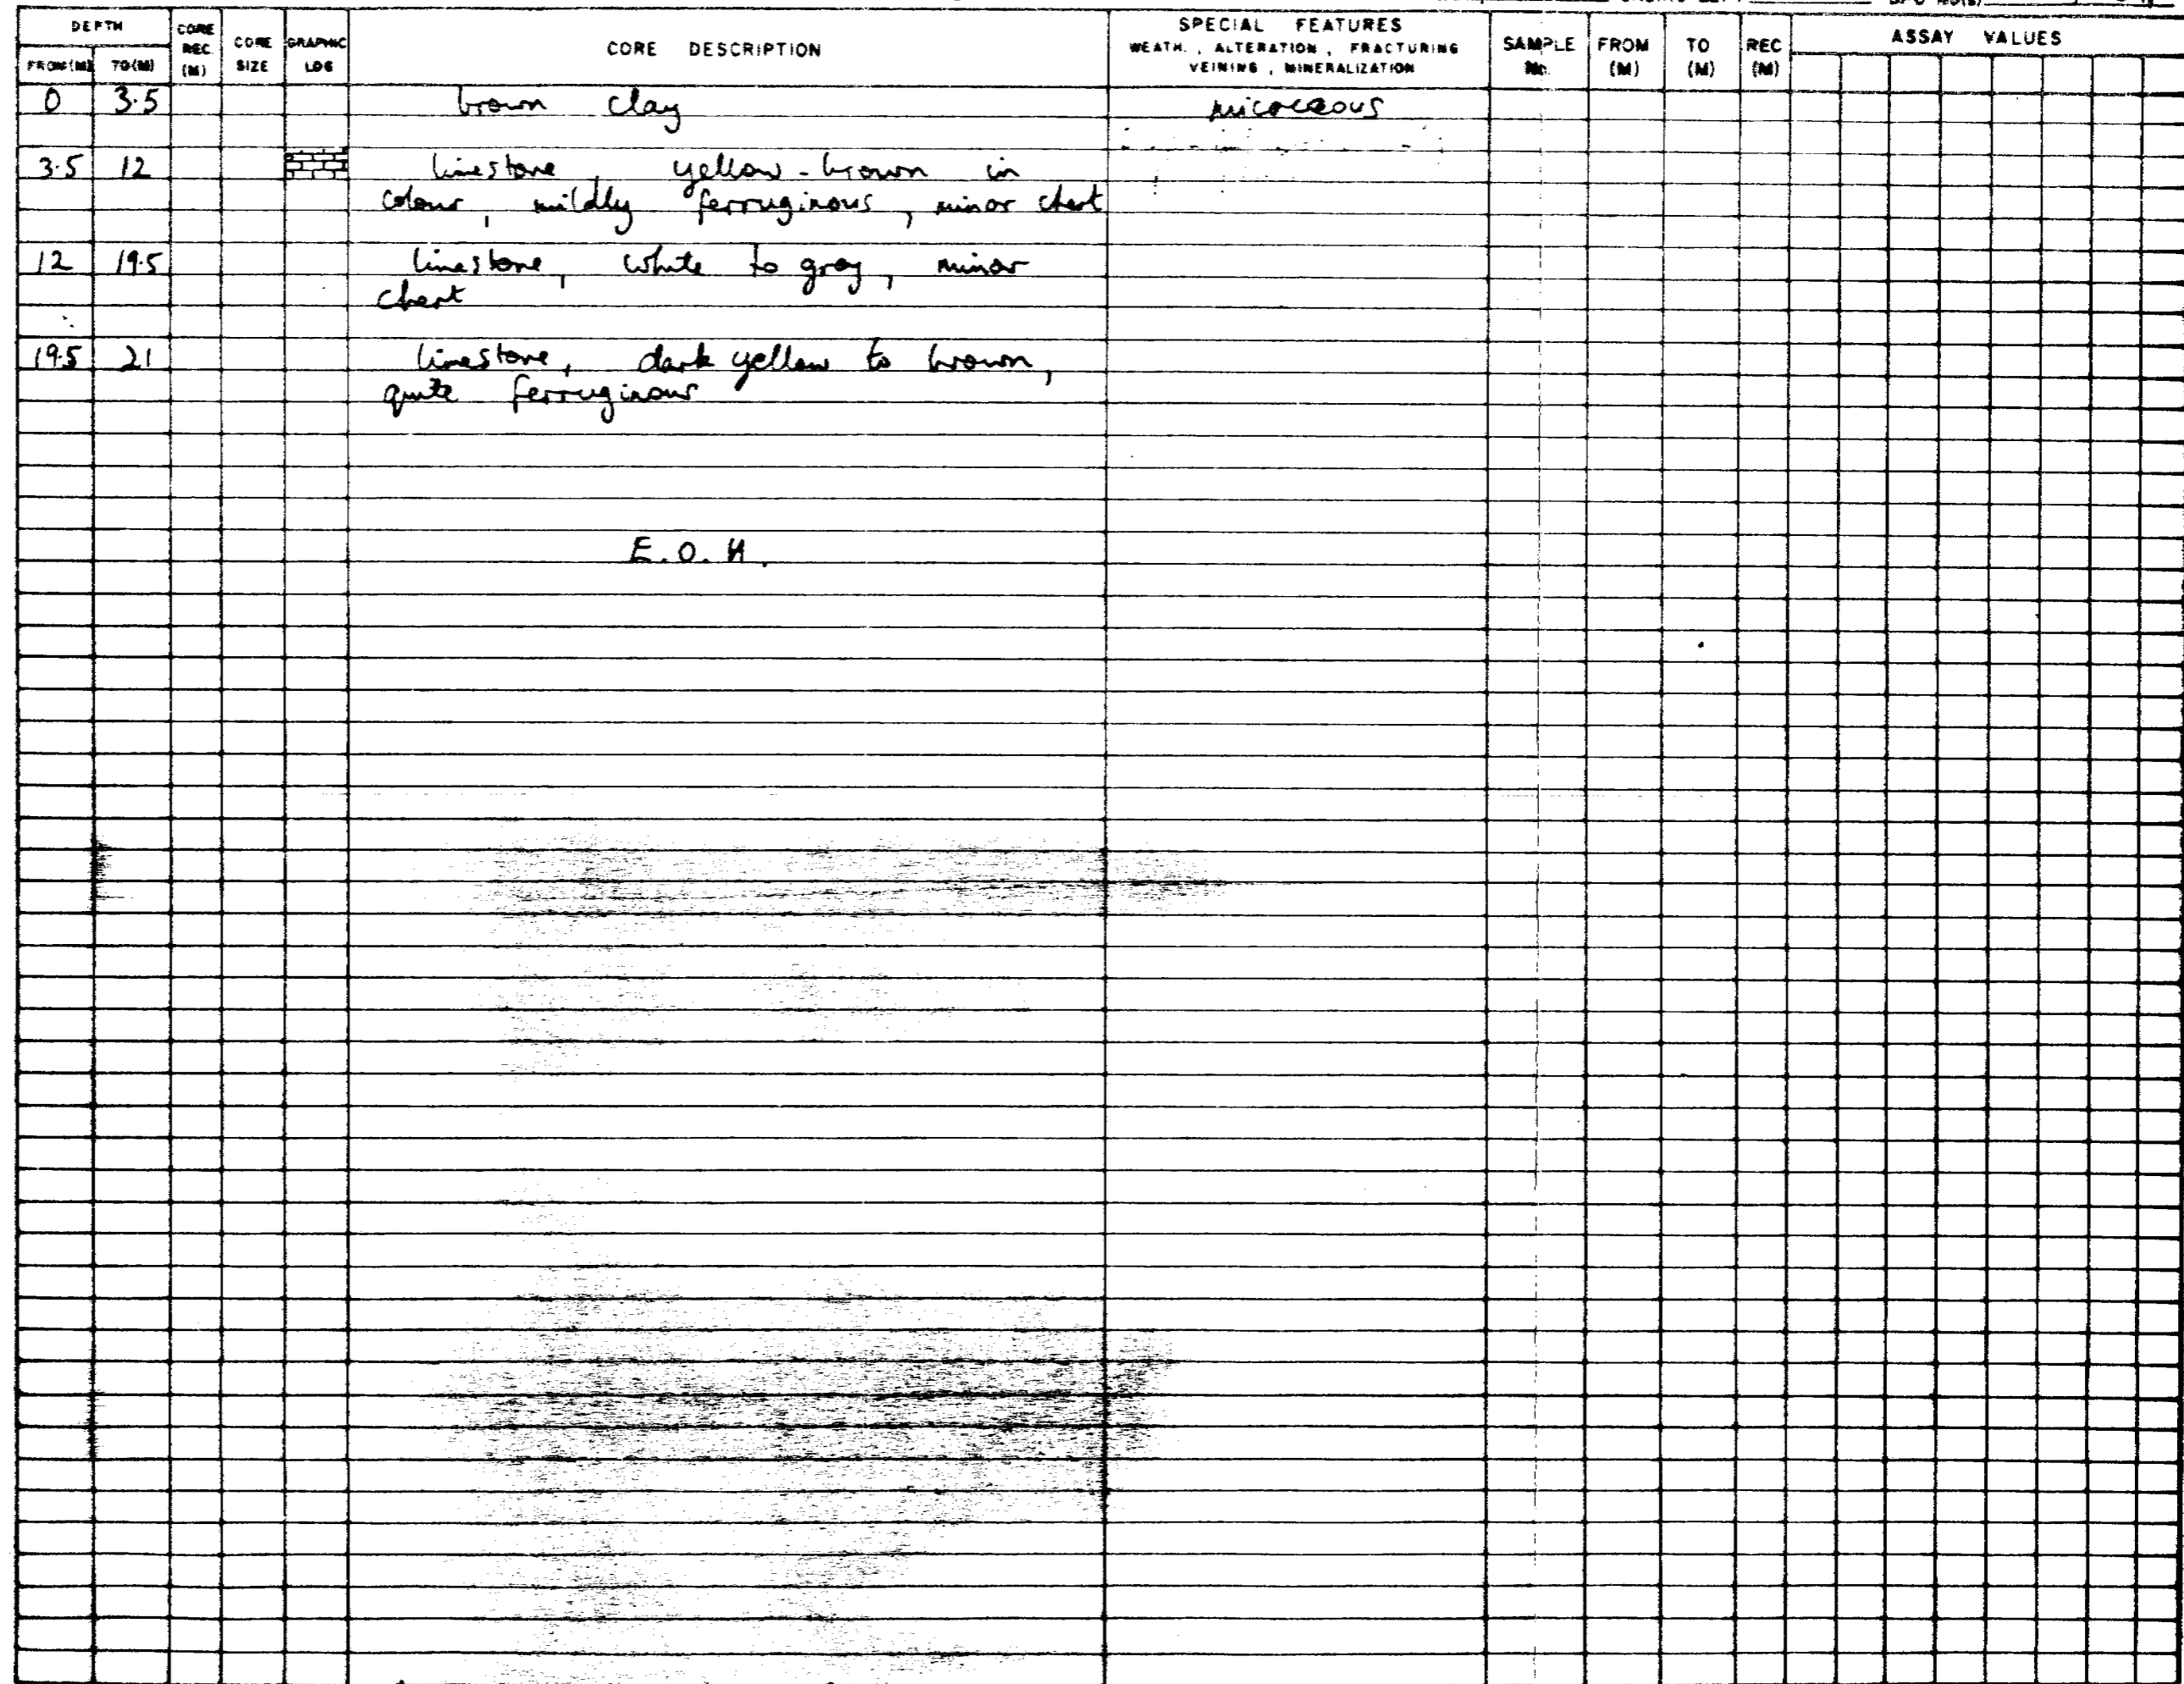 DEPTH
FROM (M) TO (M)
CORE REC. (M)
CORE SIZE
GRAPHIC LOG
CORE DESCRIPTION
SPECIAL FEATURES
WEATH. , ALTERATION , FRACTURING
VEINING , MINERALIZATION
SAMPLE No.
FROM (M)
TO (M)
REC (M)
ASSAY VALUES
0 3.5 brown clay micoceous
3.5 12 limestone, yellow-brown in
colour, mildly ferruginous, minor chert
12 19.5 limestone, white to grey, minor
chert
19.5 21 limestone, dark yellow to brown,
quite ferruginous
E.O.H.